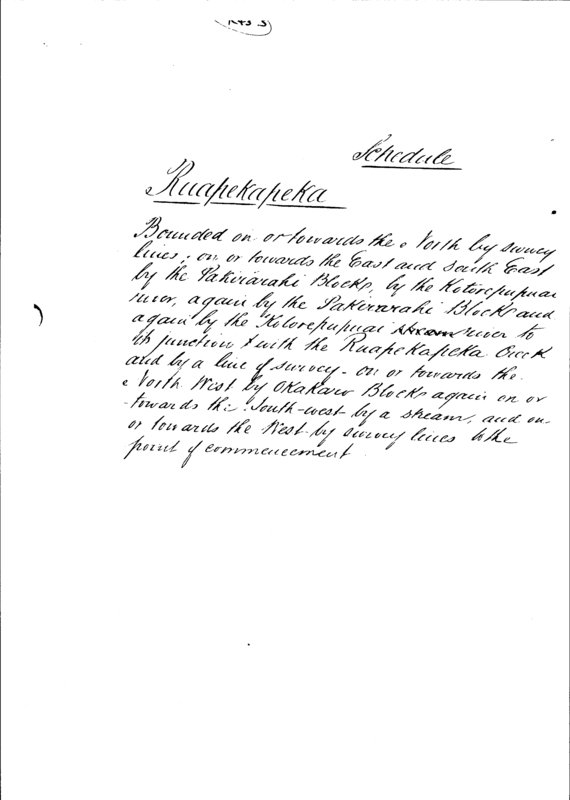 Schedule
Ruapekapeka
Bounded on or towards the North by survey
lines; on or towards the East and South East
by the Pakirarahi Blocks, by the Kotorepupuai
river, again by the Pakirarahi Blocks and
again by the Kotorepupuai stream river to
its junction with the Ruapekapeka Creek
and by a line of survey - on or towards the
North West by Okakaro Blocks again on or
towards the South-west by a stream, and on
or towards the West by survey lines to the
point of commencement